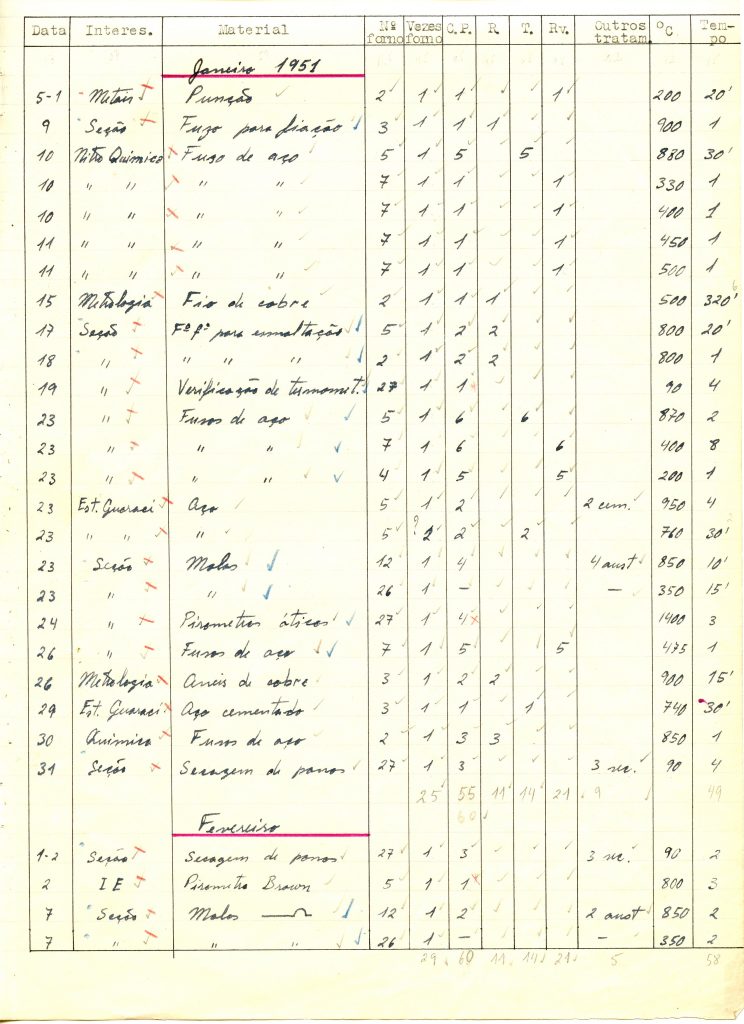 Data Interes. Material Nº forno Vezes forno C.P. R. T. Rv. Outros tratam. ºC Tempo
Janeiro 1951
5-1 Metais Punção 2 1 1 1 200 20'
9 Seção Fuzo para fiação 3 1 1 1 900 1
10 Nitro Quimica Fuso de aço 5 1 5 5 880 30'
10 " " " " 7 1 1 1 330 1
10 " " " " 7 1 1 1 400 1
11 " " " " 7 1 1 1 450 1
11 " " " " 7 1 1 1 500 1
15 Metrologia Fio de cobre 2 1 1 1 500 320'
17 Seção Fº fº para esmaltação 5 1 2 2 800 20'
18 " " " " 2 1 2 2 800 1
19 " Verificação de termomet. 27 1 1 90 4
23 " Fusos de aço 5 1 6 6 870 2
23 " " " 7 1 6 6 400 8
23 " " " 4 1 5 5 200 1
23 Est. Guaraci Aço 5 1 2 2 cem. 950 4
23 " " " 5 ? 2 2 2 760 30'
23 Seção Molas 12 1 4 4 aust 850 10'
23 " " 26 1 — — 350 15'
24 " Pirometros óticos 27 1 4 1400 3
26 " Fusos de aço 7 1 5 5 475 1
26 Metrologia Aneis de cobre 3 1 2 2 900 15'
29 Est. Guaraci Aço cementado 3 1 1 1 740 30'
30 Quimica Fusos de aço 2 1 3 3 850 1
31 Seção Secagem de panos 27 1 3 3 sec. 90 4
25 55 11 14 21 9 49
60
Fevereiro
1-2 Seção Secagem de panos 27 1 3 3 sec. 90 2
2 I E Pirometro Brown 5 1 1 800 3
7 Seção Molas 12 1 2 2 aust 850 2
7 " " " 26 1 — — 350 2
29 60 11 14 21 5 58